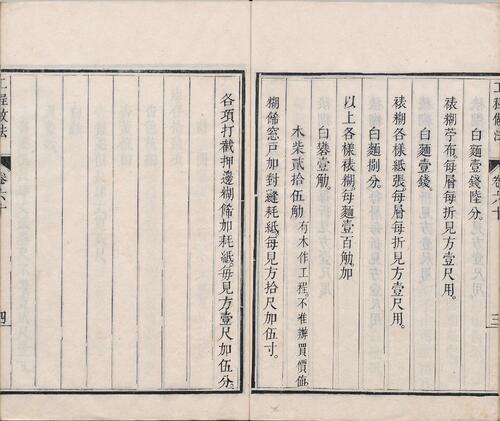 工程做法
卷六十
三
白麵壹錢陸分。
裱糊苧布。每層每折見方壹尺用。
白麵壹錢。
裱糊各樣紙張。每層每折見方壹尺用。
白麵捌分。
以上各樣裱糊。每麵壹百觔。加
白礬壹觔。
木柴貳拾伍觔。有木作工程。不准辦買價值。
糊飾窓戸加對縫耗紙。每見方拾尺加伍寸。
各項打截押邊糊飾加耗紙。每見方壹尺加伍分。
工程做法
卷六十
四